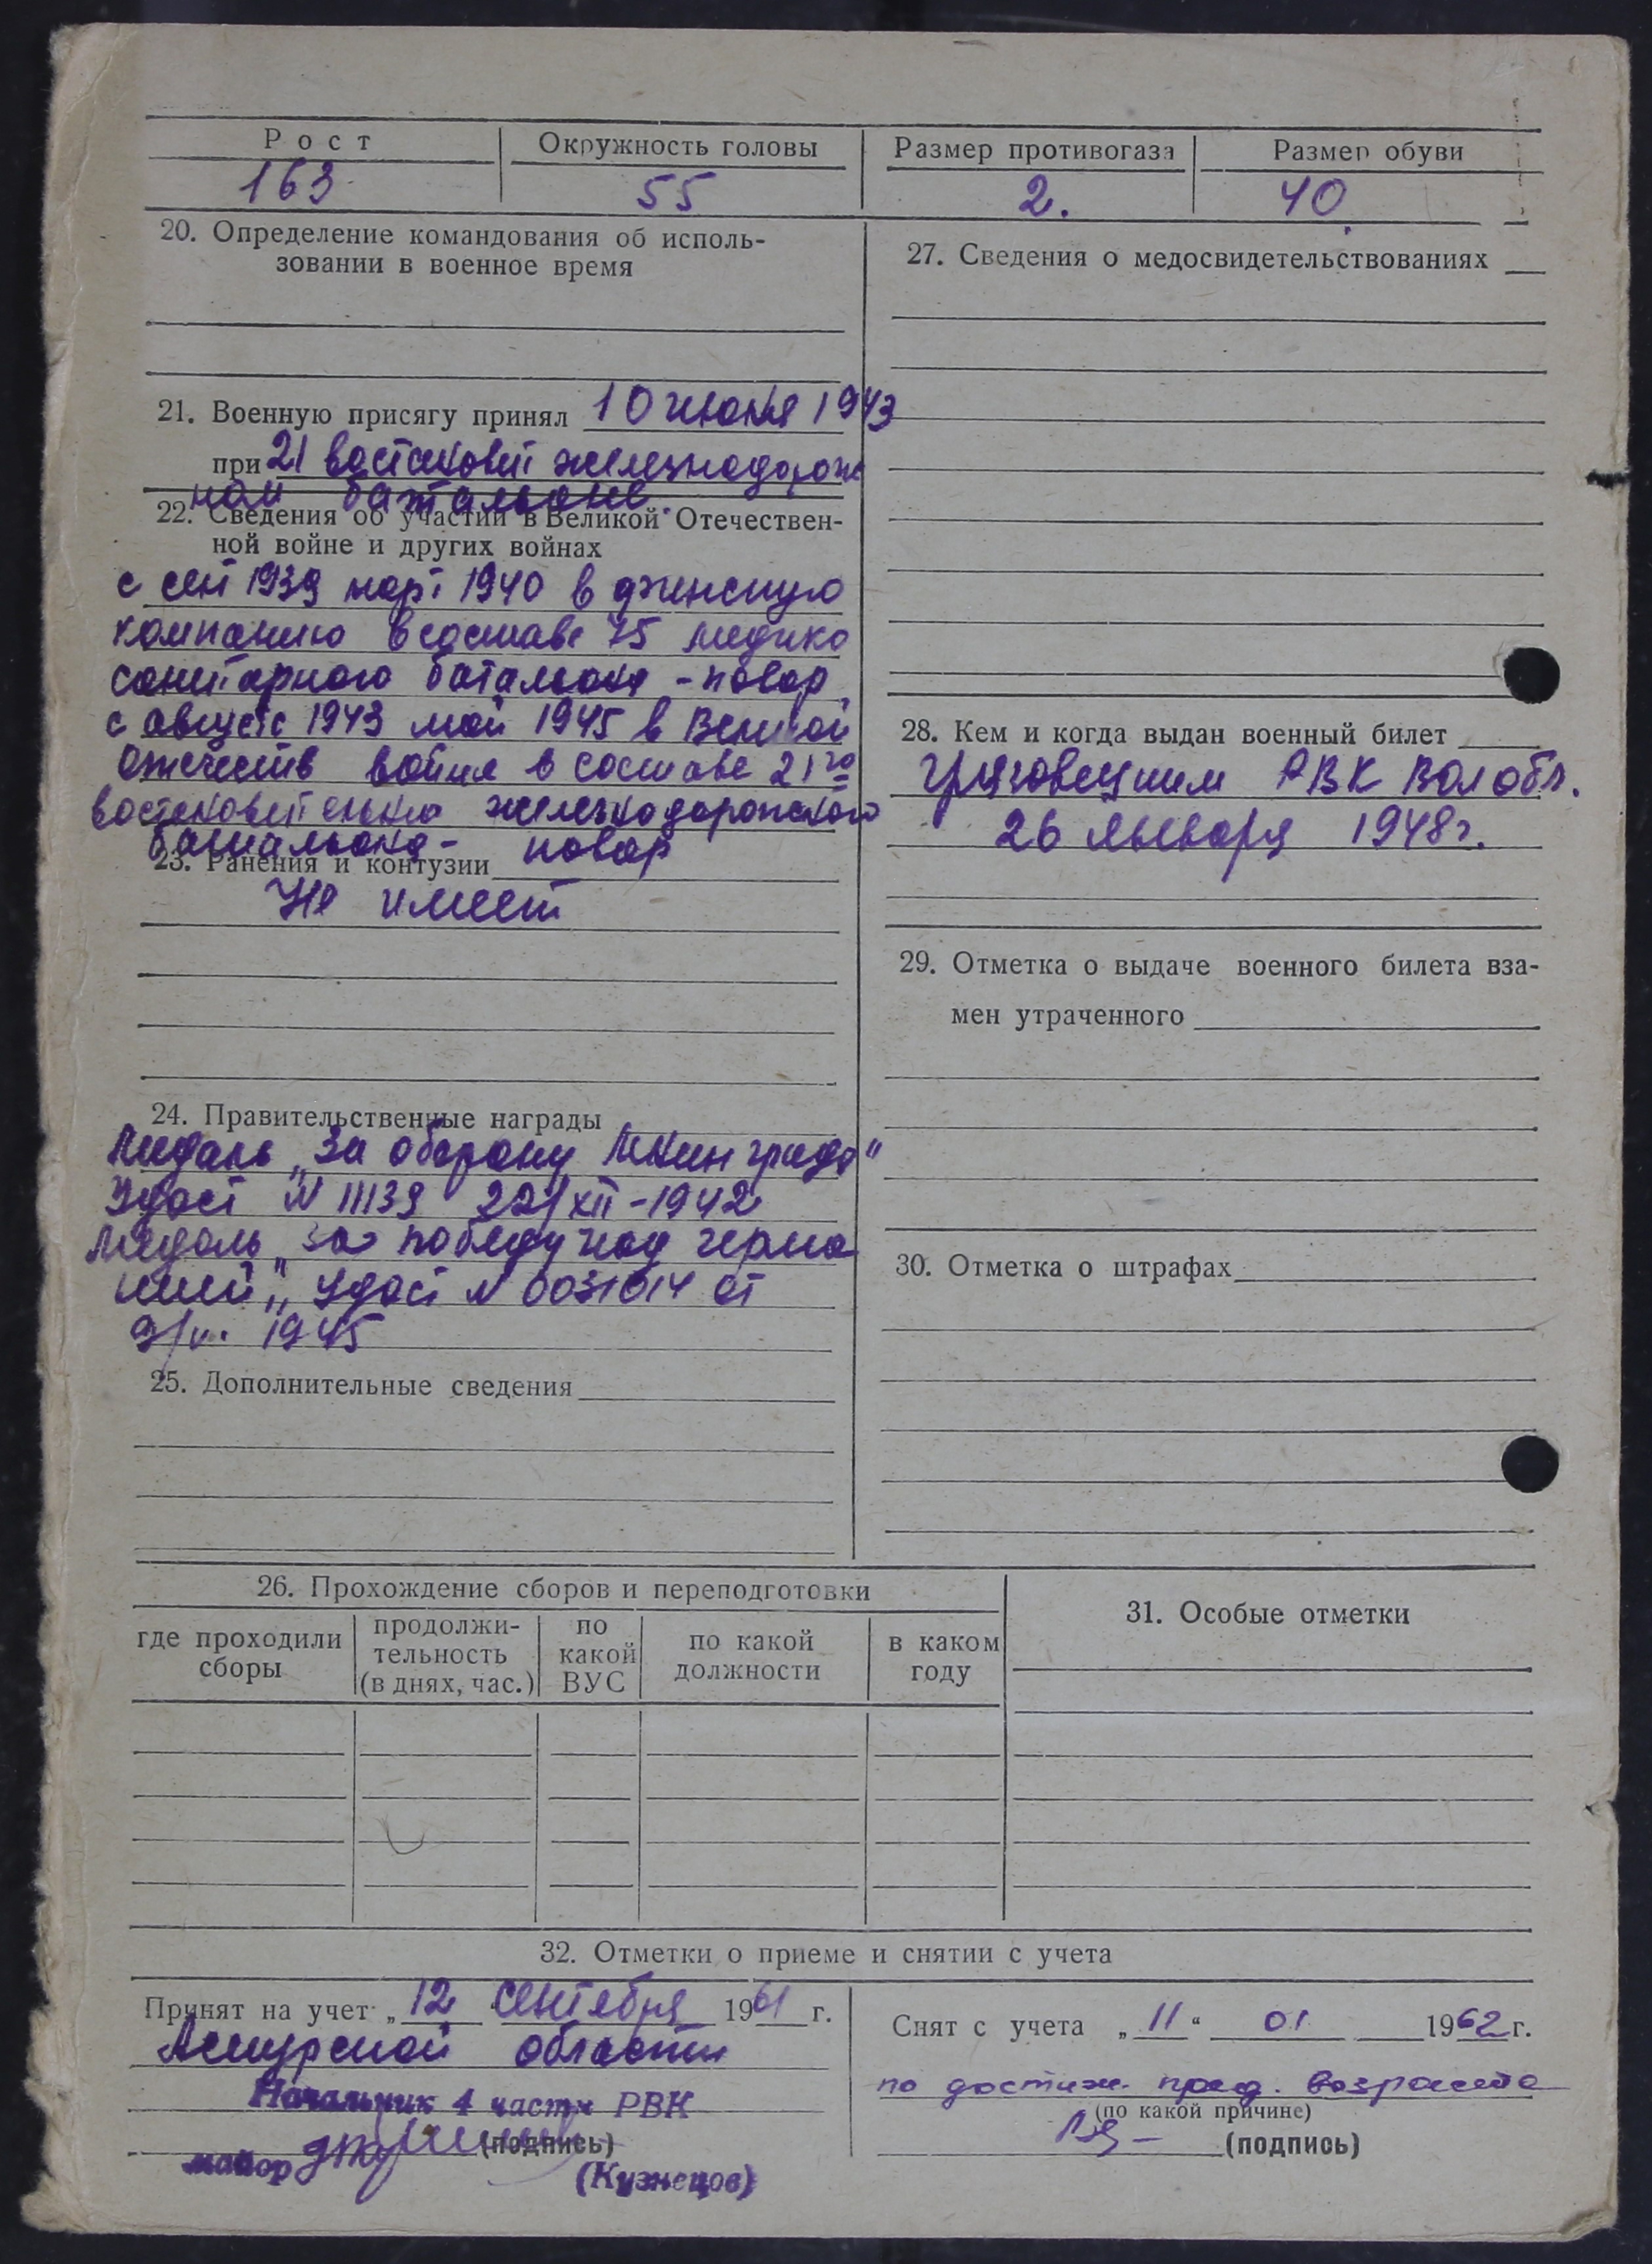 Рост
Окружность головы
Размер противогаза
Размер обуви
163
55
2.
40
20. Определение командования об исполь-
зовании в военное время
21. Военную присягу принял 10 июня 1943
при 21 востановит железнодорож
ном батальоне
22. Сведения об участии в Великой Отечествен-
ной войне и других войнах
с сент 1939 март 1940 в финскую
компанию в составе 75 медико
санитарного батальона - повар
с августа 1943 май 1945 в Великой
Отечеств война в составе 21го
железнодорожского
батальона - повар
23. Ранения и контузии
Не имеет
24. Правительственные награды
Медаль „За оборону Ленинграда"
Удост N 11139 22/XII-1942
Медаль „за победу над герма
нией" Удост N 0031014 от
9/V. 1945
25. Дополнительные сведения
26. Прохождение сборов и переподготовки
где проходили сборы
продолжи-
тельность
(в днях, час.)
по какой ВУС
по какой должности
в каком году
27. Сведения о медосвидетельствованиях
28. Кем и когда выдан военный билет
Грязовецким РВК Вол обл.
26 января 1948г.
29. Отметка о выдаче военного билета вза-
мен утраченного
30. Отметка о штрафах
31. Особые отметки
32. Отметки о приеме и снятии с учета
Принят на учет „12 сентября 1961 г.
Амурской области
Начальник 4 части РВК
(подпись)
майор
(Кузнецов)
Снят с учета „11" 01 1962 г.
по достиж. пред. возраста
(по какой причине)
(подпись)